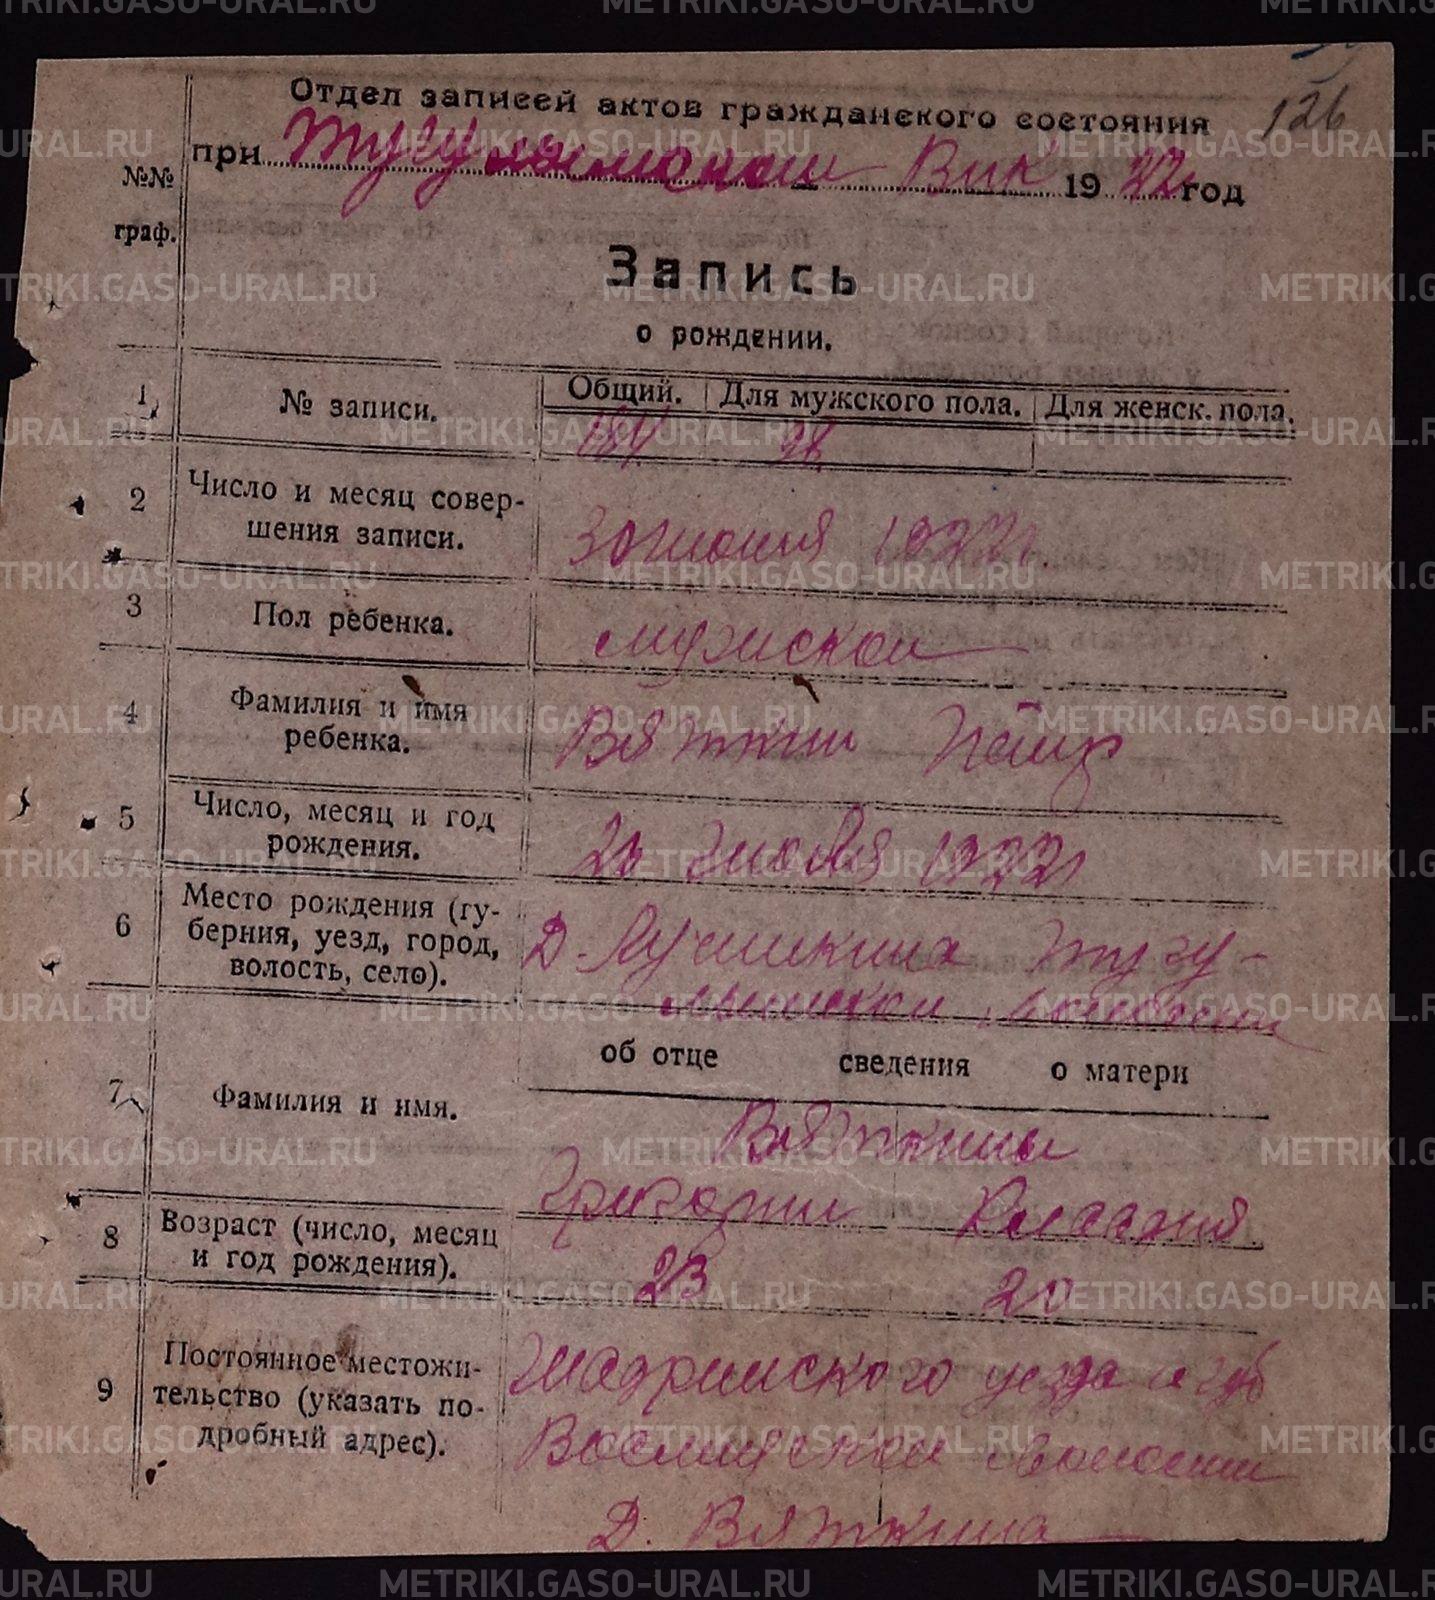 126
Отдел записей актов гражданского состояния
при Тугулымском Вик 1922 год
№№
граф.
Запись
о рождении.
1
№ записи.
Общий. Для мужского пола. Для женск. пола.
2
Число и месяц совер-
шения записи.
30 июня 1922 г
3
Пол ребенка.
мужской
4
Фамилия и имя
ребенка.
Вяткин Петр
5
Число, месяц и год
рождения.
Июня 1922 г
6
Место рождения (гу-
берния, уезд, город,
волость, село).
Д. Лучинкина Тугу-
лымской волости
об отце сведения о матери
7
Фамилия и имя.
Вяткины
Григорий Клавдия
8
Возраст (число, месяц
и год рождения).
23 20
9
Постоянное местожи-
тельство (указать по-
дробный адрес).
Шадринского уезда
волости
Д. Вяткина
METRIKI.GASO-URAL.RU